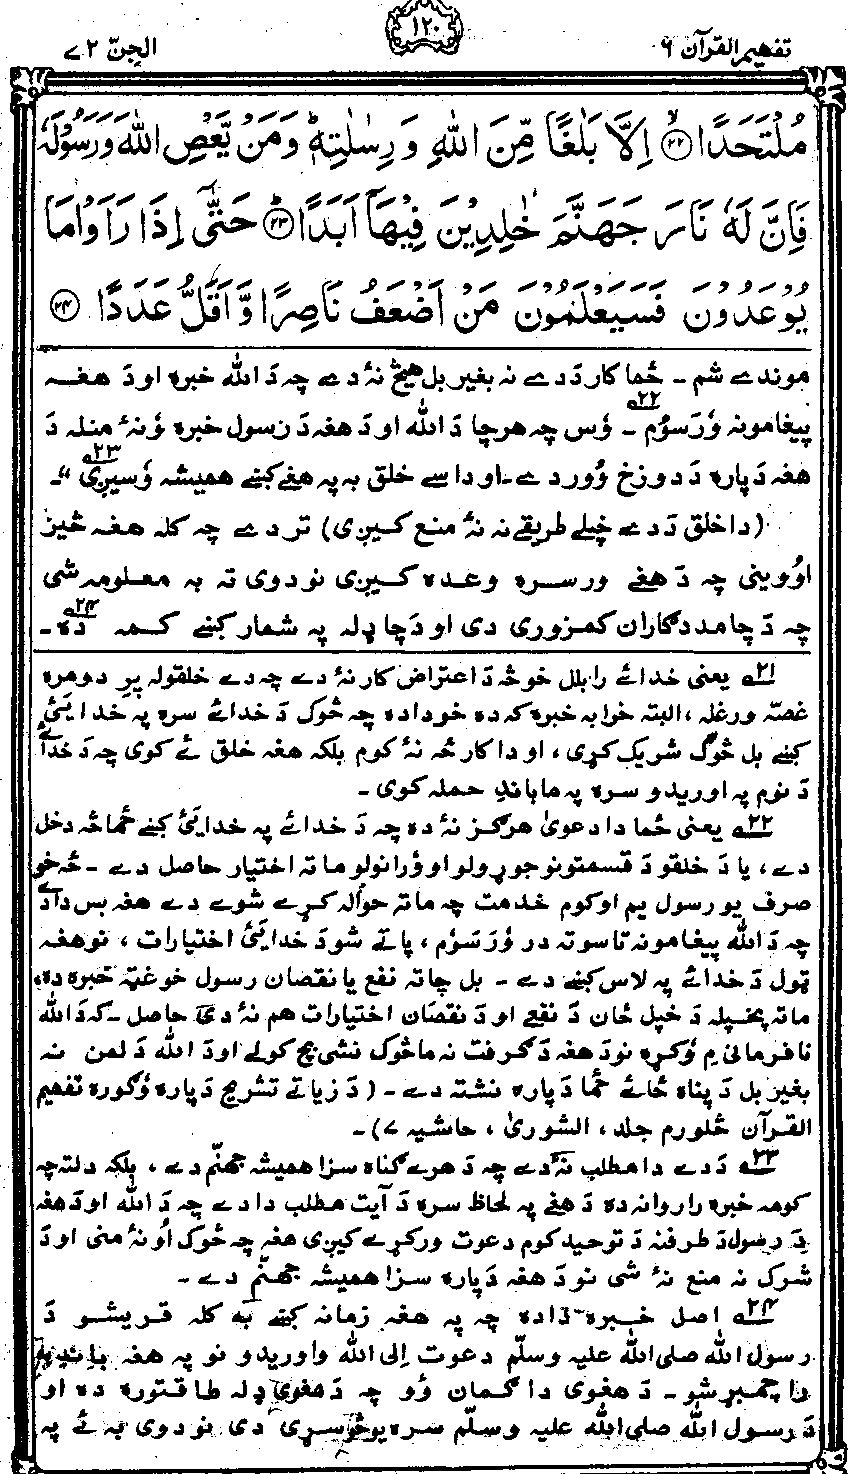 تفهیم القرآن ۶
۱۲۰
الجنّ ۷۲
مُلْتَحَدًا ﴿۲۲﴾ اِلَّا بَلٰغًا مِّنَ اللّٰهِ وَرِسٰلٰتِهٖ ؕ وَمَنْ یَّعْصِ اللّٰهَ وَرَسُوْلَهٗ
فَاِنَّ لَهٗ نَارَ جَهَنَّمَ خٰلِدِیْنَ فِیْهَاۤ اَبَدًا ؕ ﴿۲۳﴾ حَتّٰۤی اِذَا رَاَوْا مَا
یُوْعَدُوْنَ فَسَیَعْلَمُوْنَ مَنْ اَضْعَفُ نَاصِرًا وَّاَقَلُّ عَدَدًا ﴿۲۴﴾
موندے شم ۔ ځما کار دَدے نہ بغیر بل هیڅ نۀ دے چہ دَ اللّٰه خبرہ او دَ هغـہ
پیغامونہ وُرَسوُم ۲۲؎ ۔ وُس چہ هر چا دَ اللّٰه او دَ هغہ دَ رسول خبرہ وُنۀ منلہ دَ
هغہ دَ پارہ دَ دوزخ وُور دے ۔ او داسے خلق بہ پہ هغے کښے همیشہ وُسیږی ۲۳؎ “ ۔
(دا خلق دَ دے خپلے طریقے نہ نۀ منع کیږی) تر دے چہ کلہ هغہ څیز
اوُوینی چہ دَ هغے ورسرہ وعدہ کیږی نو دوی تہ بہ معلومہ شی
چہ دَ چا مددگاران کمزوری دی او دَ چا ډلہ پہ شمار کښے کمہ دہ ۲۴؎ ۔
۲۱؎ یعنی خدائے را بلل خو څہ دَ اعتراض کار نۀ دے چہ دے خلقو لہ پرِ دومرہ
غصّہ ورغلہ ، البتہ خرابہ خبرہ کہ دہ خو دا دہ چہ څوک دَ خدائے سرہ پہ خدایئ
کښے بل څوک شریک کړی ، او دا کار څہ نۀ کوم بلکہ هغہ خلق ئے کوی چہ دَ خدائے
دَ نوم پہ اوریدو سرہ پہ ما باندِ حملہ کوی ۔
۲۲؎ یعنی ځما دا دعویٰ هرګز نۀ دہ چہ دَ خدائے پہ خدایئ کښے ځما څہ دخل
دے ، یا دَ خلقو دَ قسمتونو جوړولو او وُرانولو ما تہ اختیار حاصل دے ۔ څہ خو
صرف یو رسول یم او کوم خدمت چہ ما تہ حوالہ کړے شوے دے هغہ بس دا دے
چہ دَ اللّٰه پیغامونہ تاسو تہ در وُرَسوُم ، پاتے شو دَ خدایئ اختیارات ، نو هغہ
ټول دَ خدائے پہ لاس کښے دے ۔ بل چا تہ نفع یا نقصان رسول خو غټہ خبرہ دہ،
ما تہ پخپلہ دَ خپل ځان دَ نفعے او دَ نقصان اختیارات هم نۀ دی حاصل ۔ کہ دَ اللّٰه
نا فرمانی مِ وُکړہ نو دَ هغہ دَ گرفت نہ ما څوک نشی بچ کولے او دَ اللّٰه دَ لمن نہ
بغیر بل دَ پناہ ځائے ځما دَ پارہ نشتہ دے ۔ (دَ زیاتے تشریح دَ پارہ وُګورہ تفهیم
القرآن څلورم جلد ، الشوریٰ ، حاشیہ ۷) ۔
۲۳؎ دَ دے دا مطلب نۀ دے چہ دَ هرے گناہ سزا همیشہ جهنّم دے ، بلکہ دلتہ چہ
کومہ خبرہ را روانہ دہ دَ هغے پہ لحاظ سرہ دَ آیت مطلب دا دے چہ دَ اللّٰه او دَ هغہ
دَ رسول دَ طرفنہ دَ توحید کوم دعوت ورکړے کیږی هغہ چہ څوک اُو نۀ منی او دَ
شرک نہ منع نۀ شی نو دَ هغہ دَ پارہ سزا همیشہ جهنّم دے ۔
۲۴؎ اصل خبرہ دا دہ چہ پہ هغہ زمانہ کښے بہ کلہ قریشو دَ
رسول اللّٰه صلی اللّٰه علیہ وسلّم دعوت اِلی اللّٰه واوریدو نو پہ هغہ باندِ بہ
را چمبر شو ۔ دَ هغوی دا گمان وُو چہ دَ هغوی ډلہ طاقتورہ دہ او
دَ رسول اللّٰه صلی اللّٰه علیہ وسلّم سرہ یو څو سړی دی نو دوی بہ ئے پہ